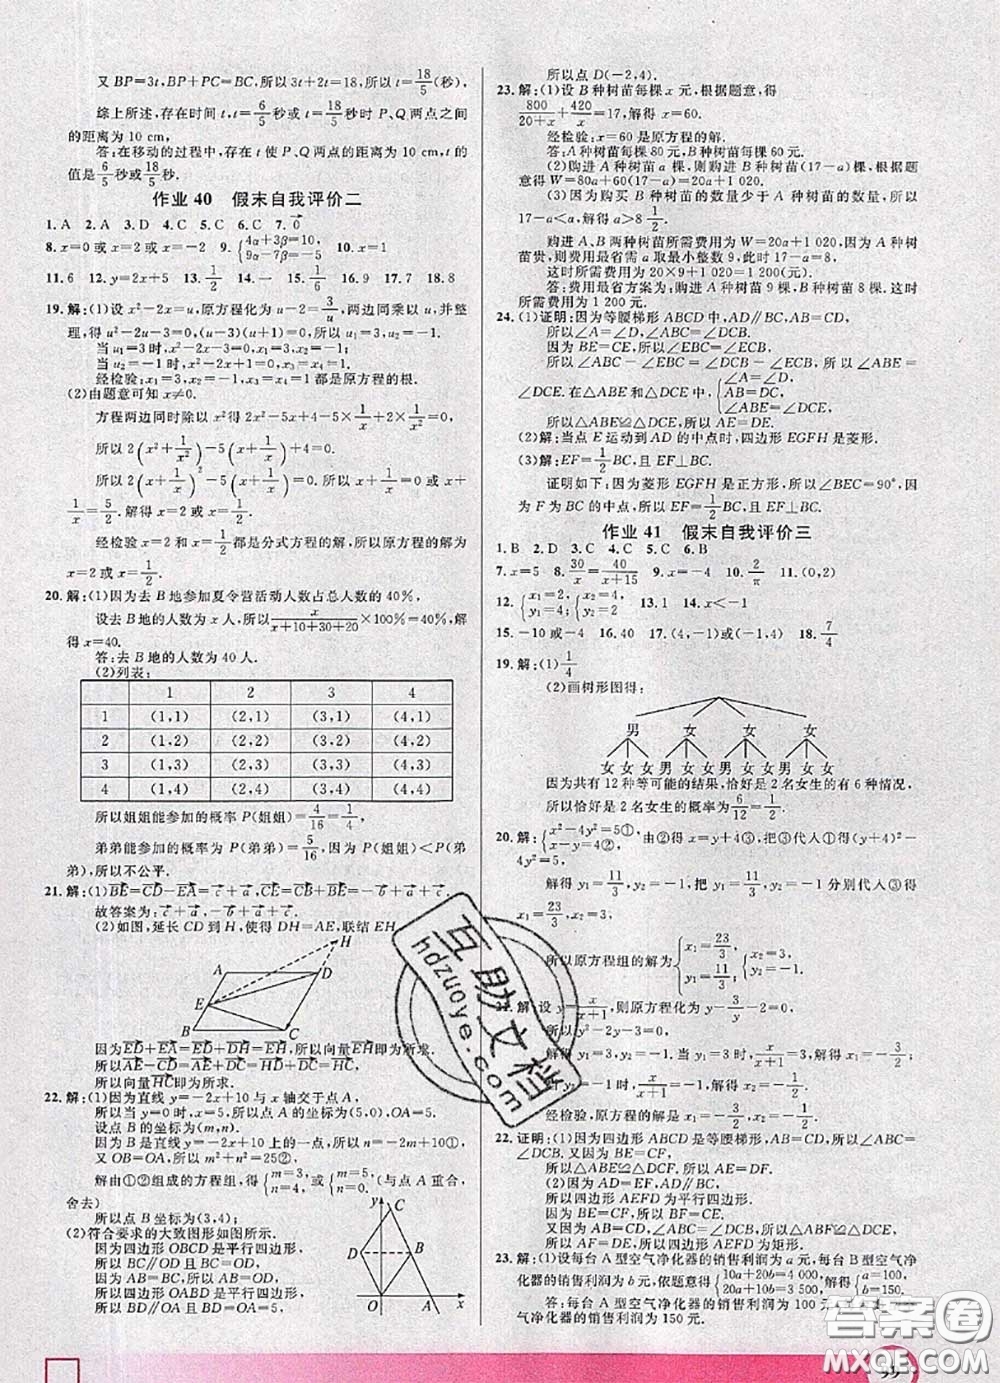 又 BP=3t,BP+PC=BC,所以 3t+2t=18,所以 t=18/5(秒).
综上所述,存在时间 t,t=6/5秒或 t=18/5秒时 P、Q 两点之间
的距离为 10 cm,
答:在移动的过程中,存在 t 使 P、Q 两点的距离为 10 cm,t
的值是6/5秒或18/5秒.
作业 40 假末自我评价二
1. A 2. A 3. D 4. C 5. C 6. C 7. 0→
8. x=0 或 x=2 或 x=-2 9. {4α+3β=10, 9α-7β=-5 10. x=1
11. 6 12. y=2x+5 13. 1/2 14. 一 15. 1/6 16. 9 17. 7 18. 8
19. 解:(1)设 x²-2x=u,原方程化为 u-2=3/u,两边同乘以 u,并整
理,得 u²-2u-3=0,(u-3)(u+1)=0,所以 u₁=3,u₂=-1.
当 u₁=3 时,x₁=3,x₂=-1,
当 u₂=-1 时,x₃=x₄=1.
经检验:x₁=3,x₂=-1,x₃=x₄=1 都是原方程的根.
(2)由题意可知 x≠0.
方程两边同时除以 x²得 2x²-5x+4-5×1/x+2×1/x²=0,
所以 2(x²+1/x²)-5(x+1/x)+4=0,
所以 2(x+1/x)²-5(x+1/x)=0,所以 x+1/x=0 或 x+
1/x=5/2. 解得 x=2 或 x=1/2.
经检验 x=2 和 x=1/2都是分式方程的解,故原方程的解为
x=2 或 x=1/2.
20. 解:(1)因为去 B 地参加夏令营活动人数占总人数的 40%,
设去 B 地的人数为 x 人,所以x/(x+10+30+20)×100%=40%,解
得 x=40.
答:去 B 地的人数为 40 人.
(2)列表:
1 2 3 4
1 (1,1) (2,1) (3,1) (4,1)
2 (1,2) (2,2) (3,2) (4,2)
3 (1,3) (2,3) (3,3) (4,3)
4 (1,4) (2,4) (3,4) (4,4)
所以姐姐能参加的概率 P(姐姐)=4/16=1/4,
弟弟能参加的概率为 P(弟弟)=5/16,因为 P(姐姐)<P(弟
弟),所以不公平.
21. 解:(1)BE→=CD→-EA→=c→+a→,CE→=CB→+BE→=-b→+a→+c→.
故答案为:c→+a→,-b→+a→+c→.
(2)如图,延长 CD 到 H,使得 DH=AE,联结 EH
H
A D
E
B C
因为ED→+EA→=ED→+DH→=EH→,所以向量EH→即为所求.
所以AE→-CD→=AE→+DC→=HD→+DC→=HC→.
所以向量HC→即为所求.
22. 解:(1)因为直线 y=-2x+10 与 x 轴交于点 A,
所以当 y=0 时,x=5,所以点 A 的坐标为(5,0),OA=5.
设点 B 的坐标为(m,n).
因为 B 是直线 y=-2x+10 上的一点,所以 n=-2m+10①,
又 OB=OA,所以 m²+n²=25②,
解由①②组成的方程组,得{m=3, n=4 或{m=5, n=0 (与点 A 重合,
舍去)
所以点 B 坐标为(3,4);
(2)符合要求的大致图形如图所示.
因为四边形 OBCD 是平行四边形,
所以 BC∥OD 且 BC=OD,
所以四边形 OABD 是平行四边形,
所以 BD∥OA 且 BD=OA=5,
y C
D B
O A x
所以点 D(-2,4).
23. 解:(1)设 B 种树苗每棵 x 元,根据题意,得
800/(20+x)+420/x=17,解得 x=60.
经检验:x=60 是原方程的解.
答:A 种树苗每棵 80 元,B 种树苗每棵 60 元.
(2)购进 A 种树苗 a 棵,则购进 B 种树苗(17-a)棵.
所需费用 W=80a+60(17-a)=20a+1 020.
(3)因为购买 B 种树苗的数量少于 A 种树苗的数量,所以
17-a<a,所以解得 a>8 1/2.
购进 A、B 两种树苗所需费用为 W=20a+1 020,因为 A 种树
苗贵,则费用最省需 a 取最小整数 9,此时 17-a=8,
这时所需费用为 20×9+1 020=1 200(元).
答:费用最省方案为:购进 A 种树苗 9 棵,B 种树苗 8 棵.这
时所需费用为 1 200 元.
24. (1)证明:因为等腰梯形 ABCD 中,AD∥BC,AB=CD,
所以∠A=∠D,∠ABC=∠DCB.
因为 BE=CE,所以∠EBC=∠ECB.
所以 ∠ABC-∠EBC=∠DCB-∠ECB,所以 ∠ABE=
∠DCE. 在△ABE 和△DCE 中,{∠A=∠D, AB=DC, ∠ABE=∠DCE,
所以△ABE≌△DCE,所以 AE=DE.
(2)解:当点 E 运动到 AD 的中点时,四边形 EGFH 是菱形.
(3)解:EF=1/2BC,且 EF⊥BC.
证明如下:因为菱形 EGFH 是正方形,所以∠BEC=90°,因
为 F 为 BC 的中点,所以 EF=1/2BC,且 EF⊥BC.
作业 41 假末自我评价三
1. B 2. D 3. C 4. C 5. C 6. B
7. x=5 8. 30/x=40/(x+15) 9. x=-4 10. 2/π 11. (0,2)
12. {x₁=2, y₁=4; {x₂=4, y₂=2; 13. 1 14. x<-1
15. -10 或-4 16. 40 17. (4,-1)或(-1,4) 18. 7/4
19. 解:(1)1/4
(2)画树形图得:
男 女 女 女
女 女 女 男 女 女 男 女 女 男 女 女
因为共有 12 种等可能的结果,恰好是 2 名女生的有 6 种情况,
所以恰好是 2 名女生的概率为6/12=1/2.
20. 解:{x²-4y²=5①, x-y=4②, 由②得 x=y+4③,把③代人①得(y+4)²-
4y²=5,
解得 y₁=11/3,y₂=-1,把 y₁=11/3,y₂=-1 分别代人③得
x₁=23/3,x₂=3,
所以原方程组的解为{x₁=23/3, y₁=11/3, {x₂=3, y₂=-1.
解 设 y=x/(x+1),则原方程化为 y-3/y-2=0,
所以 y₁=3,y₂=-1. 当 y₁=3 时,x/(x+1)=3,解得 x=
-3/2. 当 y₂=-1 时,x/(x+1)=-1,解得 x=-1/2.
经检验,原方程的解是 x₁=-3/2,x₂=-1/2.
22. 证明:(1)因为四边形 ABCD 是等腰梯形,所以 AB=DC,∠B
=∠DCB. 又因为 BE=CF,
所以△ABE≌△DCF.
(2)因为 AD=EF,AD∥BC,
所以四边形 AEFD 为平行四边形.
因为 BE=CF,所以 BF=CE,
又因为 AB=DC,∠ABC=∠DCB,所以△ABF≌△DCE,
所以 AF=DE,所以四边形 AEFD 为矩形.
23. 解:(1)设每台 A 型空气净化器的销售利润为 a 元,每台 B 型空气净
化器的销售利润为 b 元,依题意得{10a+20b=4 000, 20a+10b=3 500, 解得{a=100, b=150.
答:每台 A 型空气净化器的销售利润为 100 元
气净化器的销售利润为 150 元.
互助文档
hdzuoye.com
答案圈
MXQE.COM